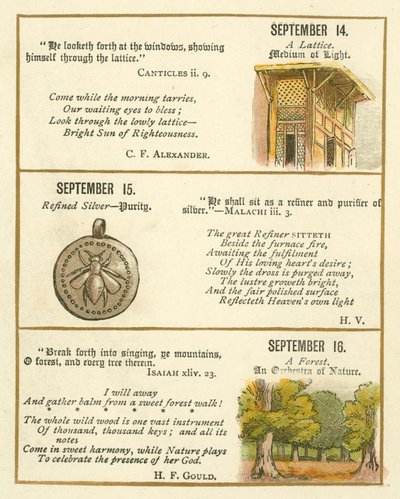 "He looketh forth at the windows, showing
himself through the lattice."
CANTICLES ii. 9.
Come while the morning tarries,
Our waiting eyes to bless;
Look through the lowly lattice—
Bright Sun of Righteousness.
C. F. ALEXANDER.
SEPTEMBER 14.
A Lattice.
Medium of Light.
SEPTEMBER 15.
Refined Silver—Purity.
"He shall sit as a refiner and purifier of
silver."—MALACHI iii. 3.
The great Refiner SITTETH
Beside the furnace fire,
Awaiting the fulfilment
Of His loving heart's desire;
Slowly the dross is purged away,
The lustre groweth bright,
And the fair polished surface
Reflecteth Heaven's own light
H. V.
"Break forth into singing, ye mountains,
O forest, and every tree therein.
ISAIAH xliv. 23.
I will away
And gather balm from a sweet forest walk!
* * * * * *
The whole wild wood is one vast instrument
Of thousand, thousand keys; and all its
notes
Come in sweet harmony, while Nature plays
To celebrate the presence of her God.
H. F. GOULD.
SEPTEMBER 16.
A Forest.
An Orchestra of Nature.